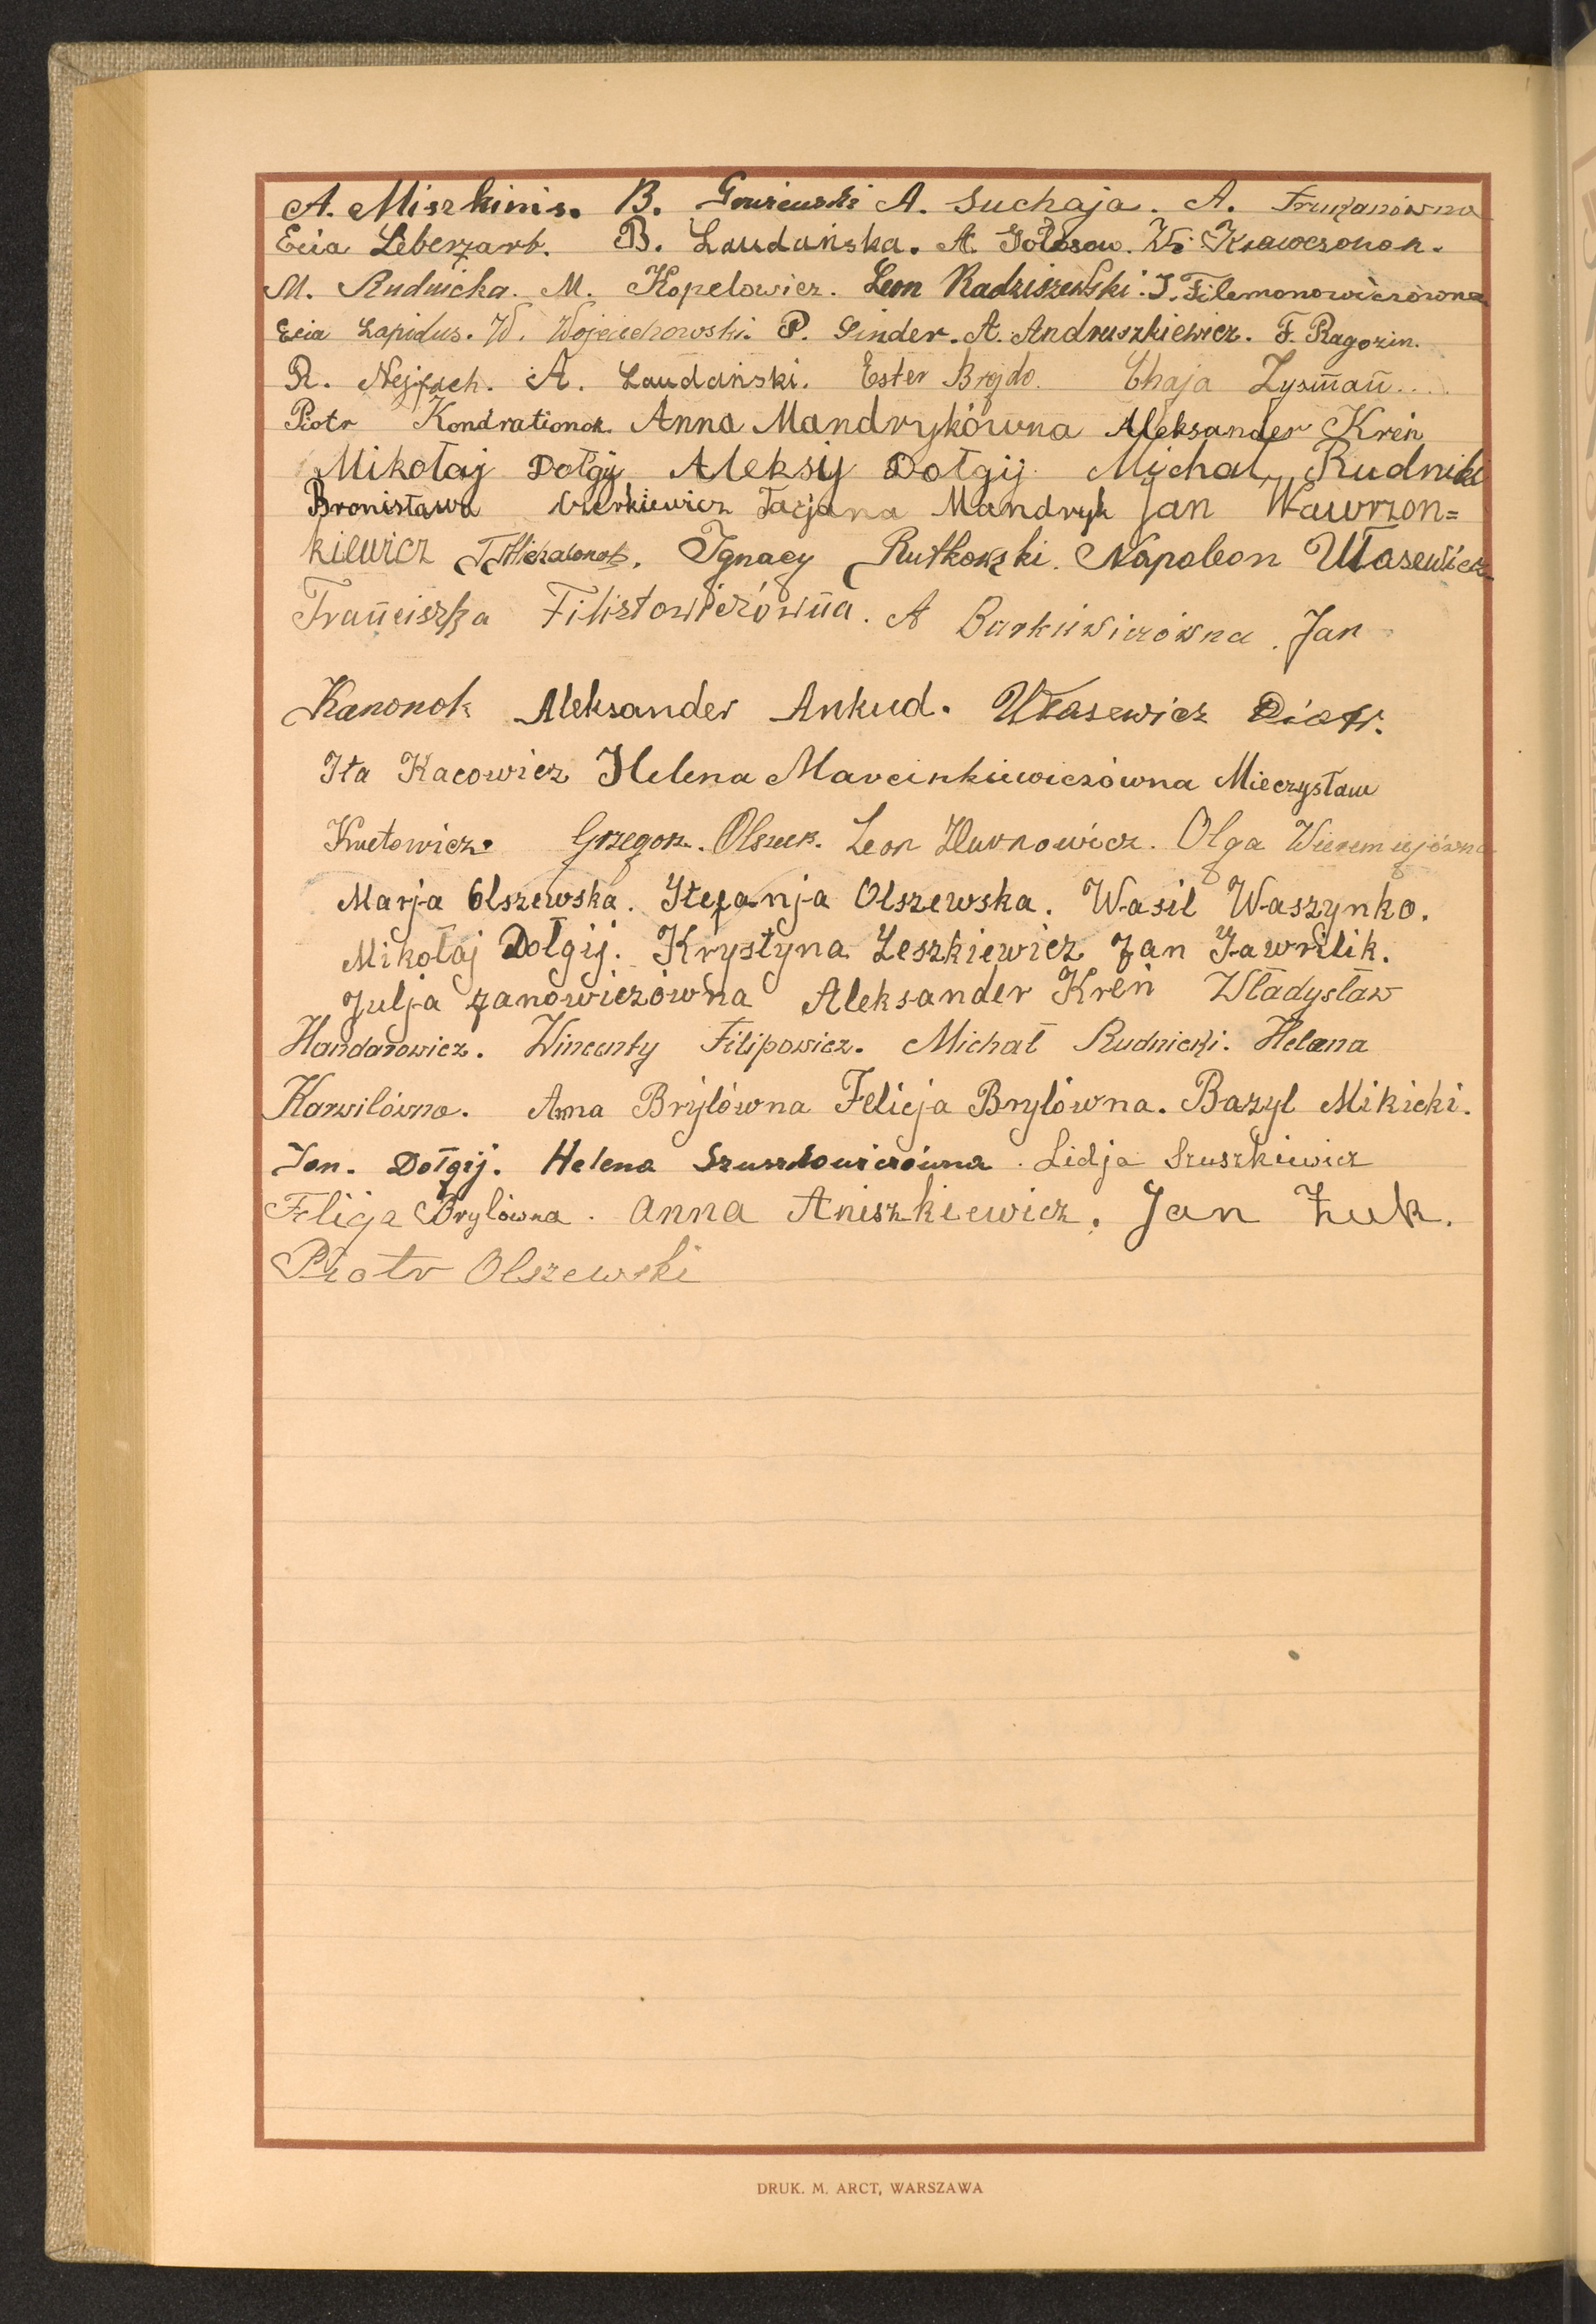 A. Miszkinis. B. A. Suchaja. A.
Ecia Leberzarb. B. Laudańska. A. Gołosow. Krawczonok.
M. Rudnicka. M. Kopelowicz. Leon Radziszewski. J. Filemonowiczówna
Ecia Lapidus. W. Wojciechowski. P. Sinder. A. Andruszkiewicz. F. Ragozin.
R. Nejfach. A. Laudański. Ester Brojdo. Chaja Zysman.
Piotr Kondrationok. Anna Mandrykówna Aleksander Kreń
Mikołaj Dołgij Aleksij Dołgij Michał Rudnicki
Bronisława Tacjana Mandryk Jan Wawrzon=
kiewicz Ignacy Rutkowski. Napoleon Własewicz
Franciszka Filistowiczówna. A Jan
Kanonok Aleksander Ankud. Własewicz Piotr.
Ita Kacowicz Helena Marcinkiewiczówna Mieczysław
Grzegorz. Leon Olga Wieremiejówna
Marja Olszewska. Stefanja Olszewska. Wasil Waszynko.
Mikołaj Dołgij. Krystyna Leszkiewicz Jan Gawrilik.
Julja Janowiczówna Aleksander Kreń Władysław
Handarowicz. Wincenty Filipowicz. Michał Rudnicki. Helena
Karwilówna. Anna Bryłówna Felicja Bryłówna. Bazyl Mikicki.
Jan. Dołgij. Helena Lidja Szuszkiewicz
Felicja Bryłówna. Anna Aniszkiewicz. Jan Żuk.
Piotr Olszewski
DRUK. M. ARCT, WARSZAWA